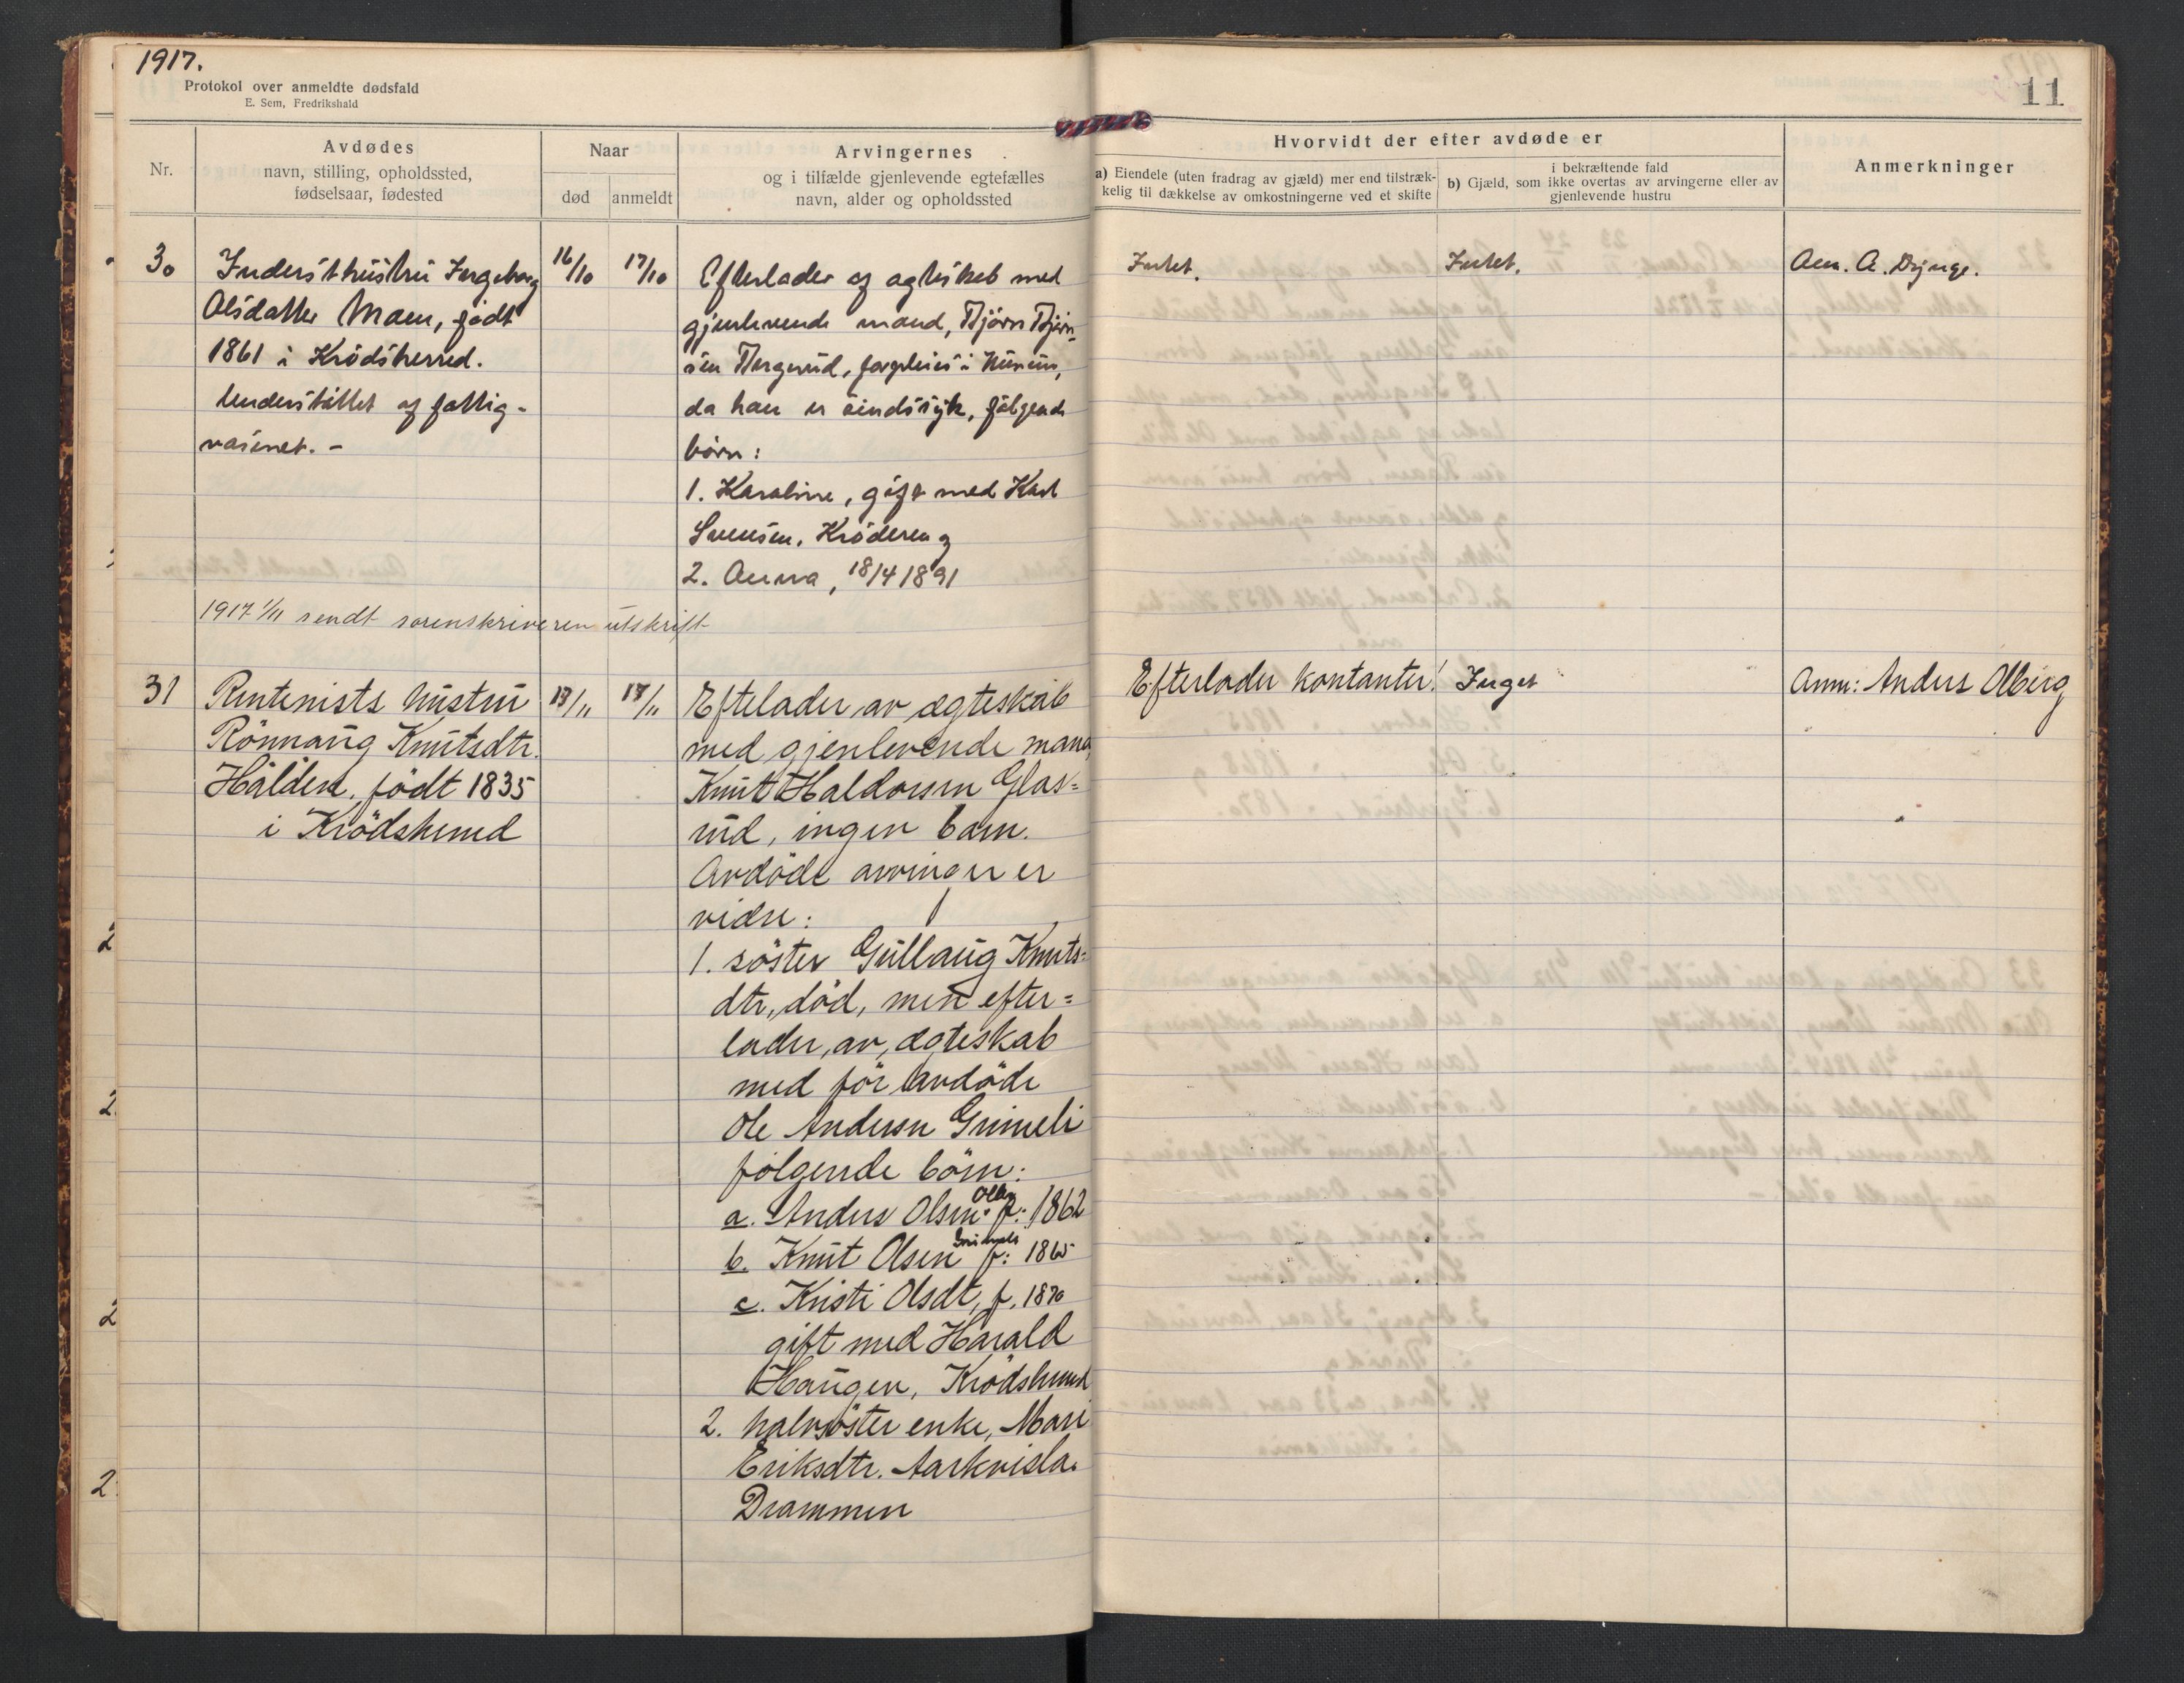 1917.
Protokol over anmeldte dødsfald
E. Sem, Fredrikshald
11
Nr.
Avdødes
navn, stilling, opholdssted,
fødselsaar, fødested
Naar
død
anmeldt
Arvingernes
og i tilfælde gjenlevende egtefælles
navn, alder og opholdssted
Hvorvidt der efter avdøde er
a) Eiendele (uten fradrag av gjæld) mer end tilstræk-
kelig til dækkelse av omkostningerne ved et skifte
i bekræftende fald
b) Gjæld, som ikke overtas av arvingerne eller av
gjenlevende hustru
Anmerkninger
30
Inderst hustru Ingeborg
Olsdatter Moen, født
1861 i Krödsherred.
Understöttet af fattig-
væsenet. -
16/10
17/10
Efterlader af ægteskab med
gjenlevende mand, Björn Björn-
sen Bergerud,
da han er sindssyk, følgende
børn:
1. Karoline, gift med Karl
Svensen, Kröderen og
2. Anna, 18/4 1891
Intet.
Intet.
Anm. A.
1917 1/11 sendt sorenskriveren utskrift
31
Rentenists hustru
Rönnaug Knutsdtr.
Hälden, födt 1835
i Krödsherred
13/11
17/11
Eftelader av ægteskab
med gjenlevende mand
Knut Haldorsen Glas=
rud, ingen barn.
Avdöde arvinger er
vidre:
1. söster Gullaug Knuts=
dtr, död, men efter=
lader, av, ægteskab
med för avdöde
Ole Andersen Grimeli
følgende börn:
a. Anders Olsen Olberg f: 1862
b. Knut Olsen Grimeli f: 1865
c. Kristi Olsdt, f. 1870
gift med Harald
Haugen, Krödsherred
2. halvsöster enke, Mari
Eriksdtr. Aarkvisla.
Drammen
Efterlader kontanter!
Inget
Anm: Anders Olberg